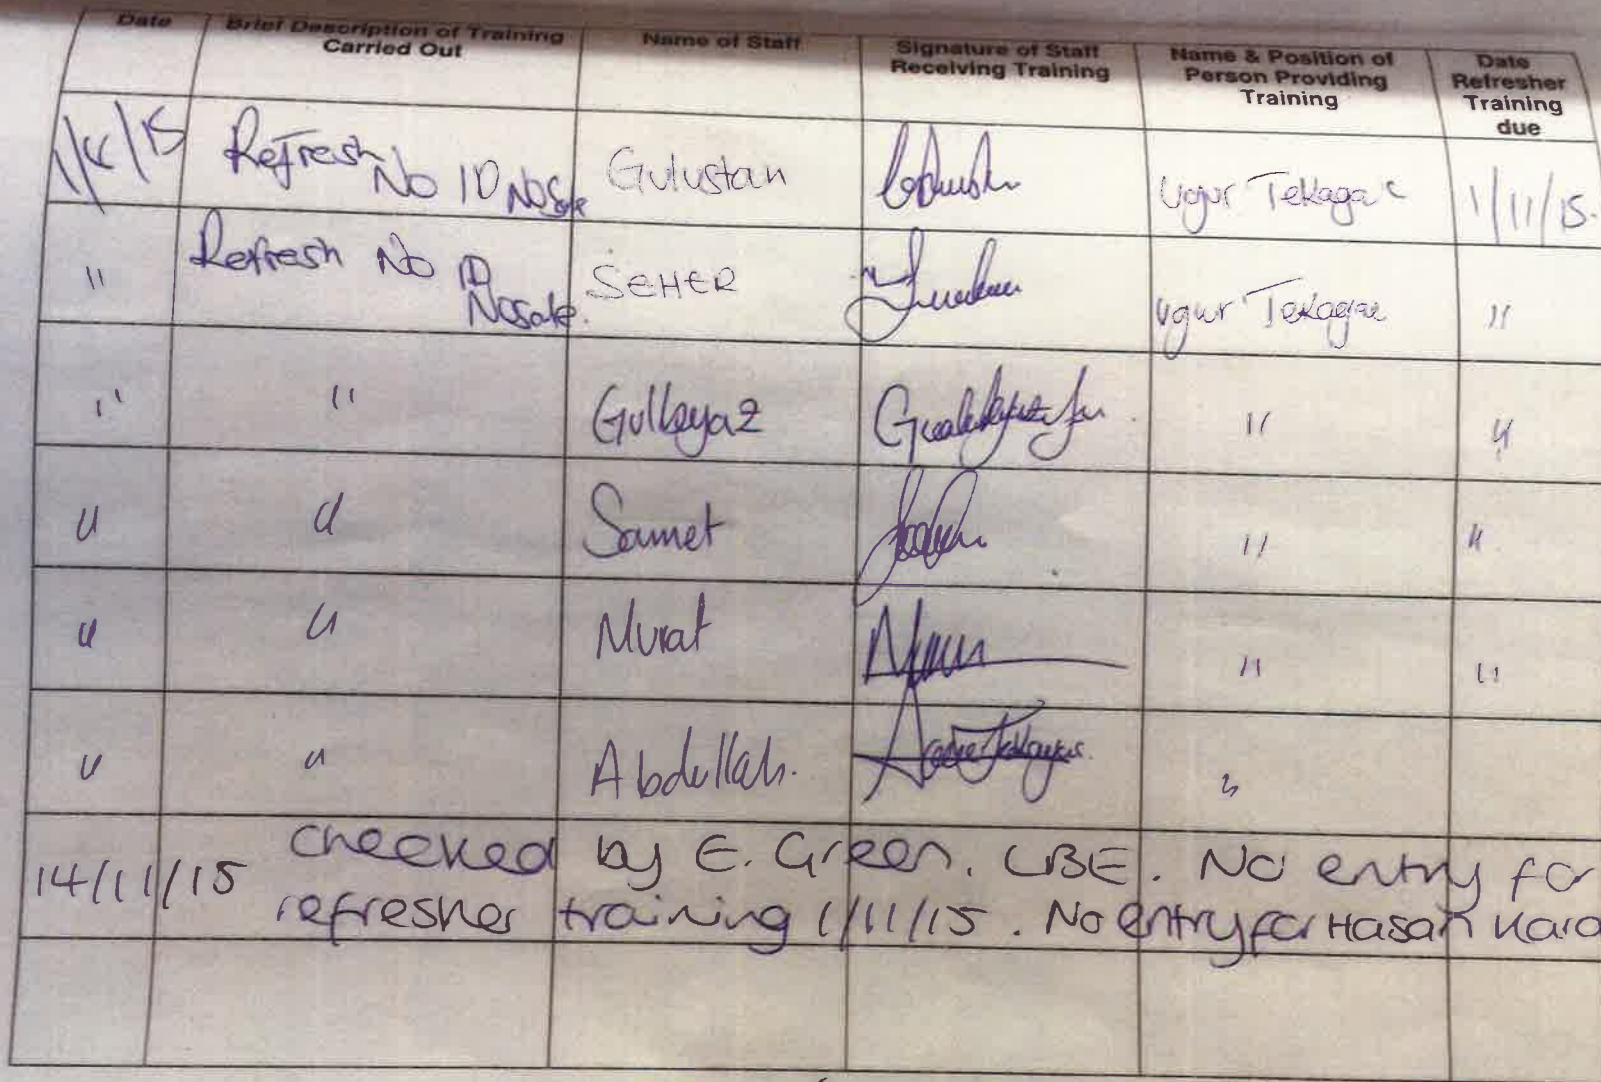 Date Brief Description of Training Carried Out Name of Staff Signature of Staff Receiving Training Name & Position of Person Providing Training Date Refresher Training due
1/4/15 Refresh No ID No Sale Gulustan Ugur Tekagac 1/11/15.
" Refresh No ID No sale. SEHER Ugur Tekagac "
" " Gulbeyaz " "
" " Samet " "
" " Murat " "
" " Abdullah. "
14/11/15 checked by E. Green. LBE. No entry for
refresher training 1/11/15. No entry for Hasan Kara